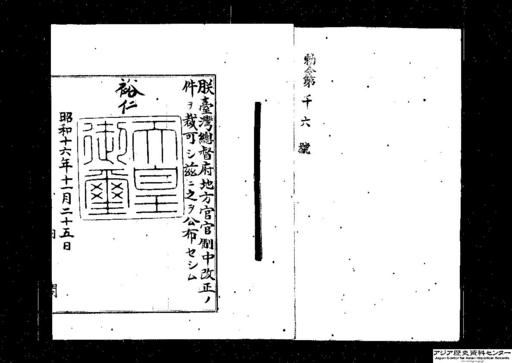 勅令第千六號
朕臺灣總督府地方官官制中改正ノ
件ヲ裁可シ茲ニ之ヲ公布セシム
裕仁
天皇
御璽
昭和十六年十一月二十五日
内閣
アジア歴史資料センター
Japan Center for Asian Historical Records